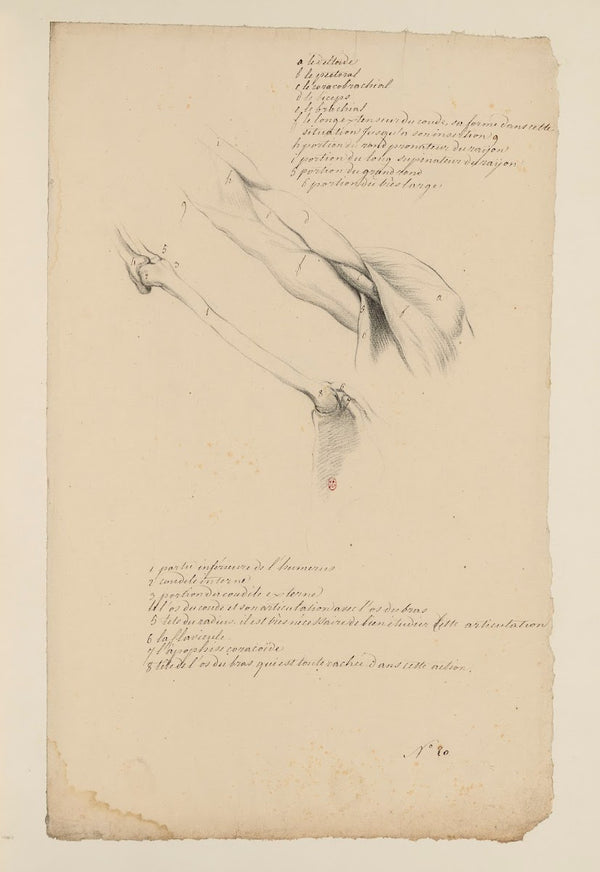 a le deltoide
b le pectoral
c le coracobrachial
d le biceps
e le brachial
f le long extenseur du coude, sa forme dans cette
situation jusqu'a son insertion g
h portion du rond pronateur du raiyon
i portion du long supinateur du raiyon
5 portion du grand rond
6 portion du très large
1 partie inférieure de l'humerus
2 condile interne
3 portion du condile externe
4 l'os du coude et son articulation avec l'os du bras
5 tete du radius, il est très nécessaire de bien étudier cette articulation
6 la clavicule
7 l'apophise coracoïde
8 tete de l'os du bras qui est toute cachée dans cette action.
N° 20